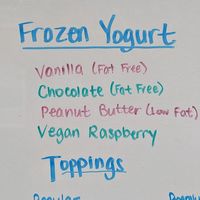 Frozen Yogurt
Vanilla (Fat Free)
Chocolate (Fat Free)
Peanut Butter (Low Fat)
Vegan Raspberry
Toppings